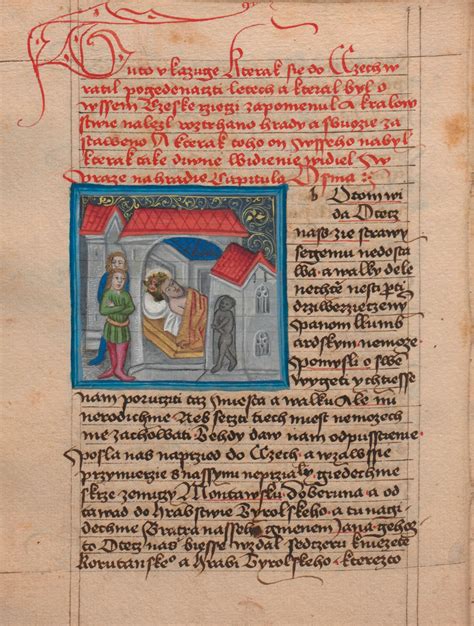 Tuto vkazuge kterak sie do Czech w
ratil po gedenaczti letech a kteral byl o
wssem Czeske rzieczi zapomenul A kralow
stwie nalezl roztrhano hrady a sbozie za
staweno A kterak toho on wsseho nabyl
kterak take diwne widienie widiel w
praze na hradie Capitula Osma
Otom wi
da Otecz
nass zie strawy
segemu nedosta
wa a walky dele
nechtie nesti proti
drziewerzieczenym
panom lkumb
ardskym nemoze
Pomysli o swe
wygeti y chtiesse
nam poruczti taz miesta a walku Ale mi
nerodichme Nes sstzti tiech miest nemozech
me zachowati Tehdy daw nam odpusstienie
posla nas naprzod do Czech a wzawsse
przymierzie s nassymi neprziately giedechme
skrze zemi Montawsku do Beruna a od
tawad do hrabstwie Tyrolskeho a tu nagi
dechme Bratra nasseho gmenem Jana gehoz
to Otecz nass biesse wzdal s edtzeru kniezete
korutanskeho a hrabi Tyrolskeho kterezto